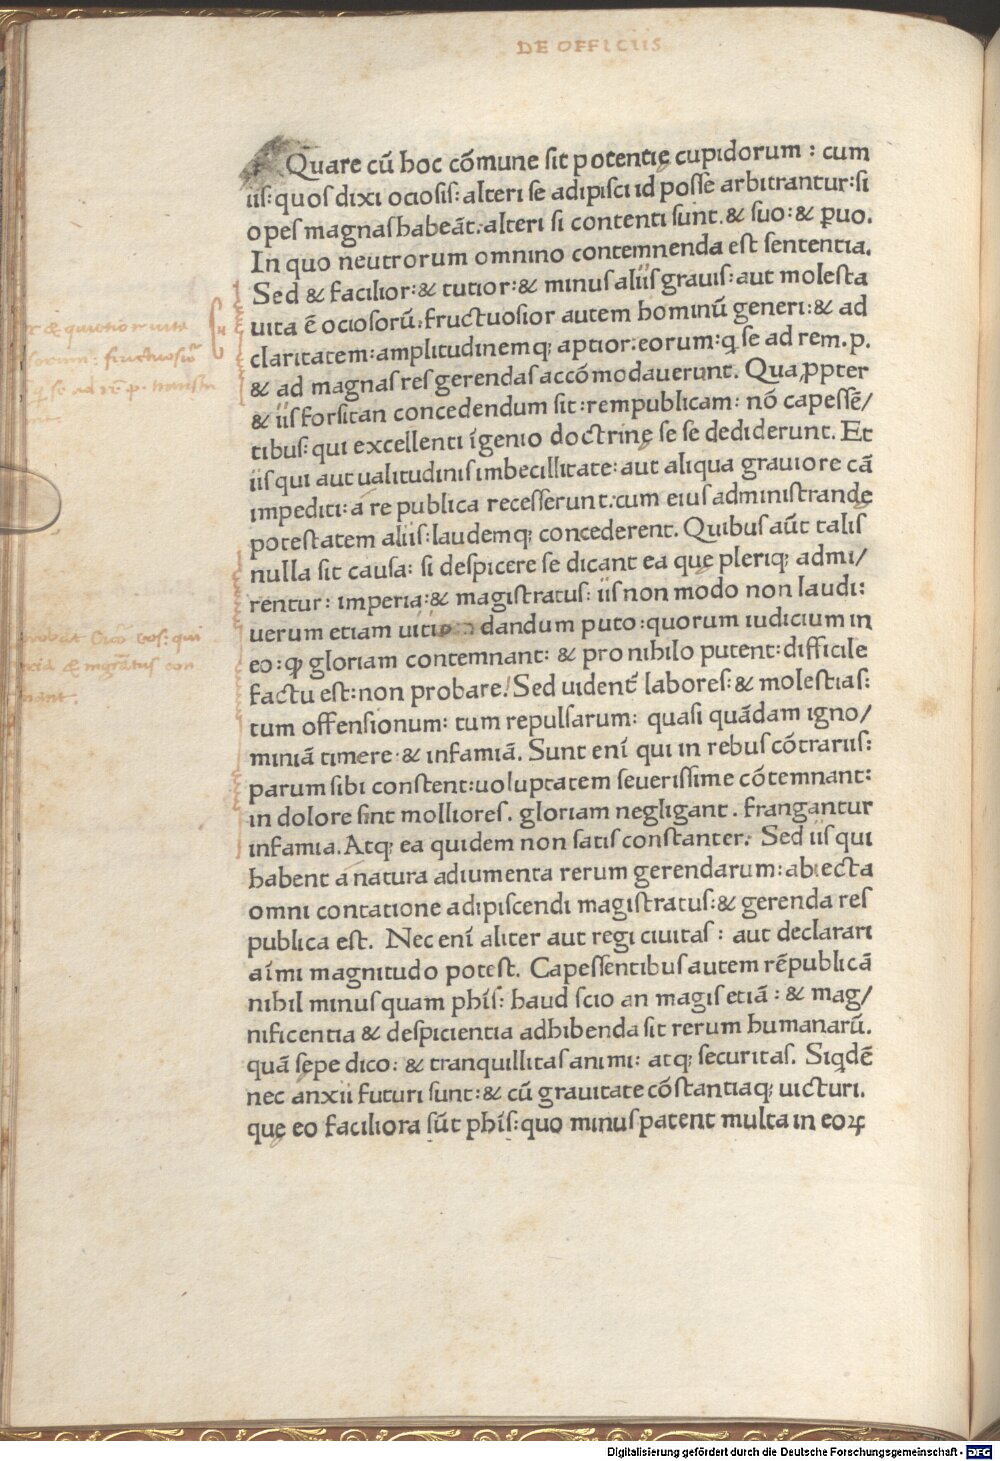 DE OFFICIIS
Quare cū hoc cōmune sit potentię cupidorum : cum
iis: quos dixi ociosis: alteri se adipisci id posse arbitrantur: si
opes magnas habeāt. alteri si contenti sunt. & suo: & ꝑuo.
In quo neutrorum omnino contemnenda est sententia.
Sed & facilior: & tutior: & minus aliis grauis: aut molesta
uita ē ociosorū. fructuosior autem hominū generi: & ad
claritatem: amplitudinemq; aptior: eorum: q̄ se ad rem. p.
& ad magnas res gerendas accōmodauerunt. Qua ꝓpter
& iis forsitan concedendum sit: rempublicam: nō capessē/
tibus: qui excellenti īgenio doctrinę se se dediderunt. Et
iis qui aut ualitudinis imbecillitate: aut aliqua grauiore cā
impediti: a re publica recesserunt. cum eius administrandę
potestatem aliis: laudemq; concederent. Quibus aūt talis
nulla sit causa: si despicere se dicant ea quę pleriq; admi/
rentur: imperia: & magistratus: iis non modo non laudi:
uerum etiam uitio dandum puto: quorum iudicium in
eo: ꝙ gloriam contemnant: & pro nihilo putent: difficile
factu est: non probare. Sed uident̄ labores: & molestias:
tum offensionum: tum repulsarum: quasi quādam igno/
miniā timere & infamiā. Sunt enī qui in rebus cōtrariis:
parum sibi constent: uoluptatem seuerissime cōtemnant:
in dolore sint molliores. gloriam negligant. frangantur
infamia. Atq; ea quidem non satis constanter. Sed iis qui
habent a natura adiumenta rerum gerendarum: abiecta
omni contatione adipiscendi magistratus: & gerenda res
publica est. Nec enī aliter aut regi ciuitas : aut declarari
aīmi magnitudo potest. Capessentibus autem rēpublicā
nihil minus quam phīs: haud scio an magis etiā : & mag/
nificentia & despicientia adhibenda sit rerum humanarū.
quā sępe dico: & tranquillitas animi: atq; securitas. Siqdē
nec anxii futuri sunt: & cū grauitate cōstantiaq; uicturi.
quę eo faciliora sūt phīs: quo minus patent multa in eoꝝ
& quietior uita
fructuosiō
se ad rē p.
qui
& mgrātus con
nant.